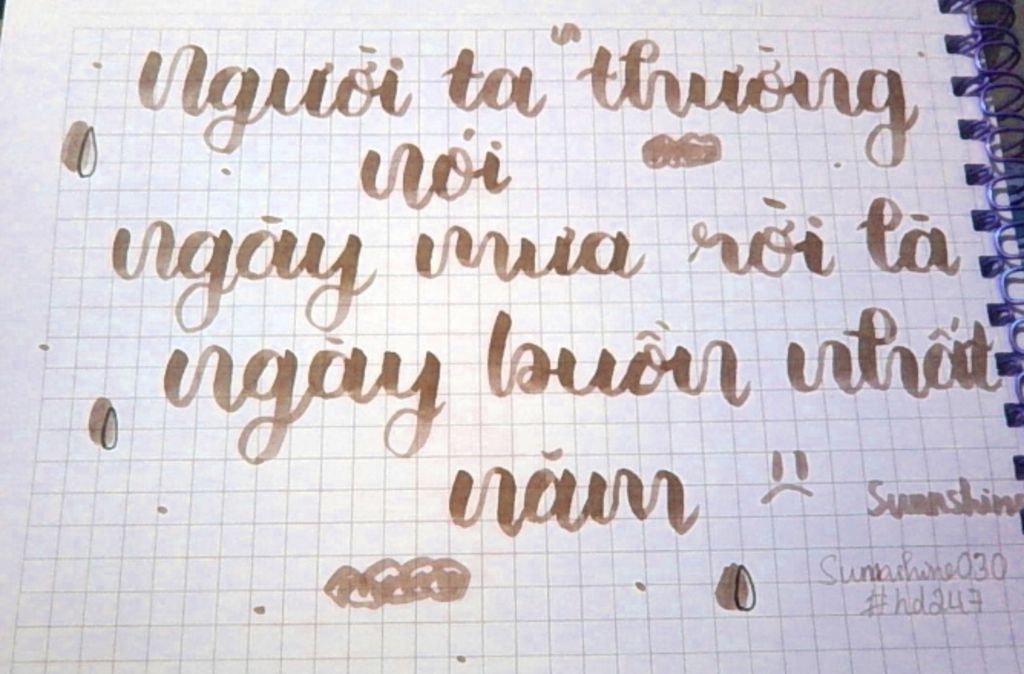 Người ta thường
nói
ngày mưa rơi là
ngày buồn nhất
năm :(
Sunnshine
Sunnshine030
#hd247